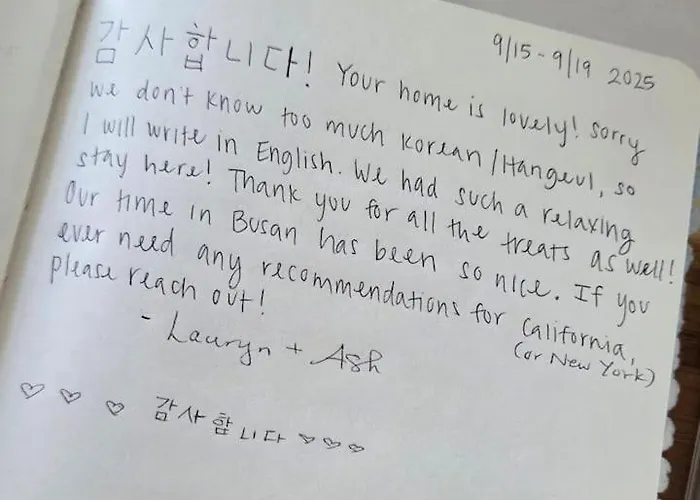 9/15 - 9/19 2025
감사합니다! Your home is lovely! Sorry
we don't know too much Korean/Hangeul, so
I will write in English. We had such a relaxing
stay here! Thank you for all the treats as well!
Our time in Busan has been so nice. If you
ever need any recommendations for California,
(or New York)
please reach out!
- Lauryn + Ash
♡ ♡ ♡ 감사합니다 ♡♡♡